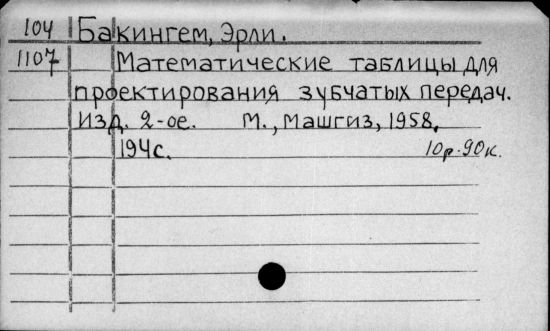 104 Бакингем, Эрли.
1107 Математические таблицы для
проектирования зубчатых передач.
Изд. 2-ое. М., Машгиз, 1958.
194с. 10р.90к.